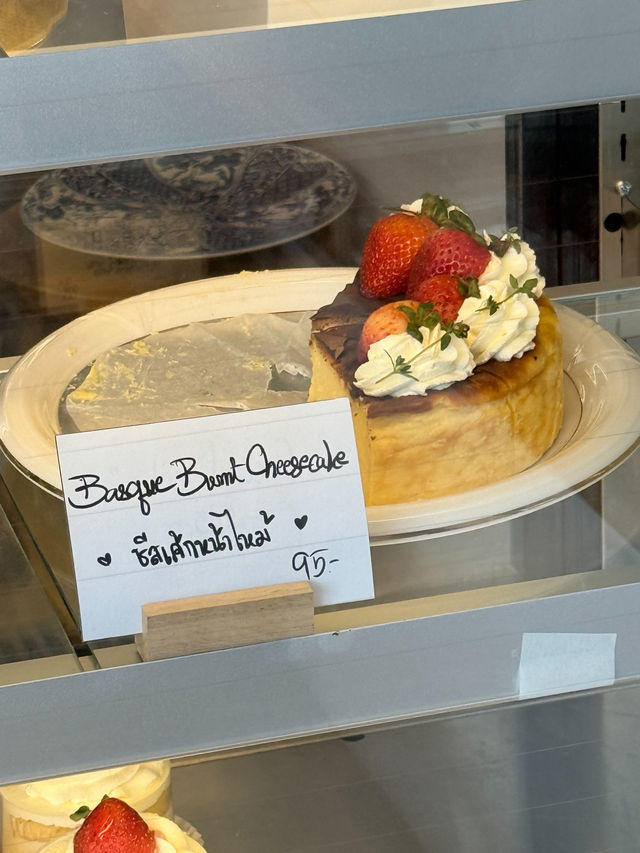 Basque Burnt Cheesecake
ชีสเค้กหน้าไหม้
95.-